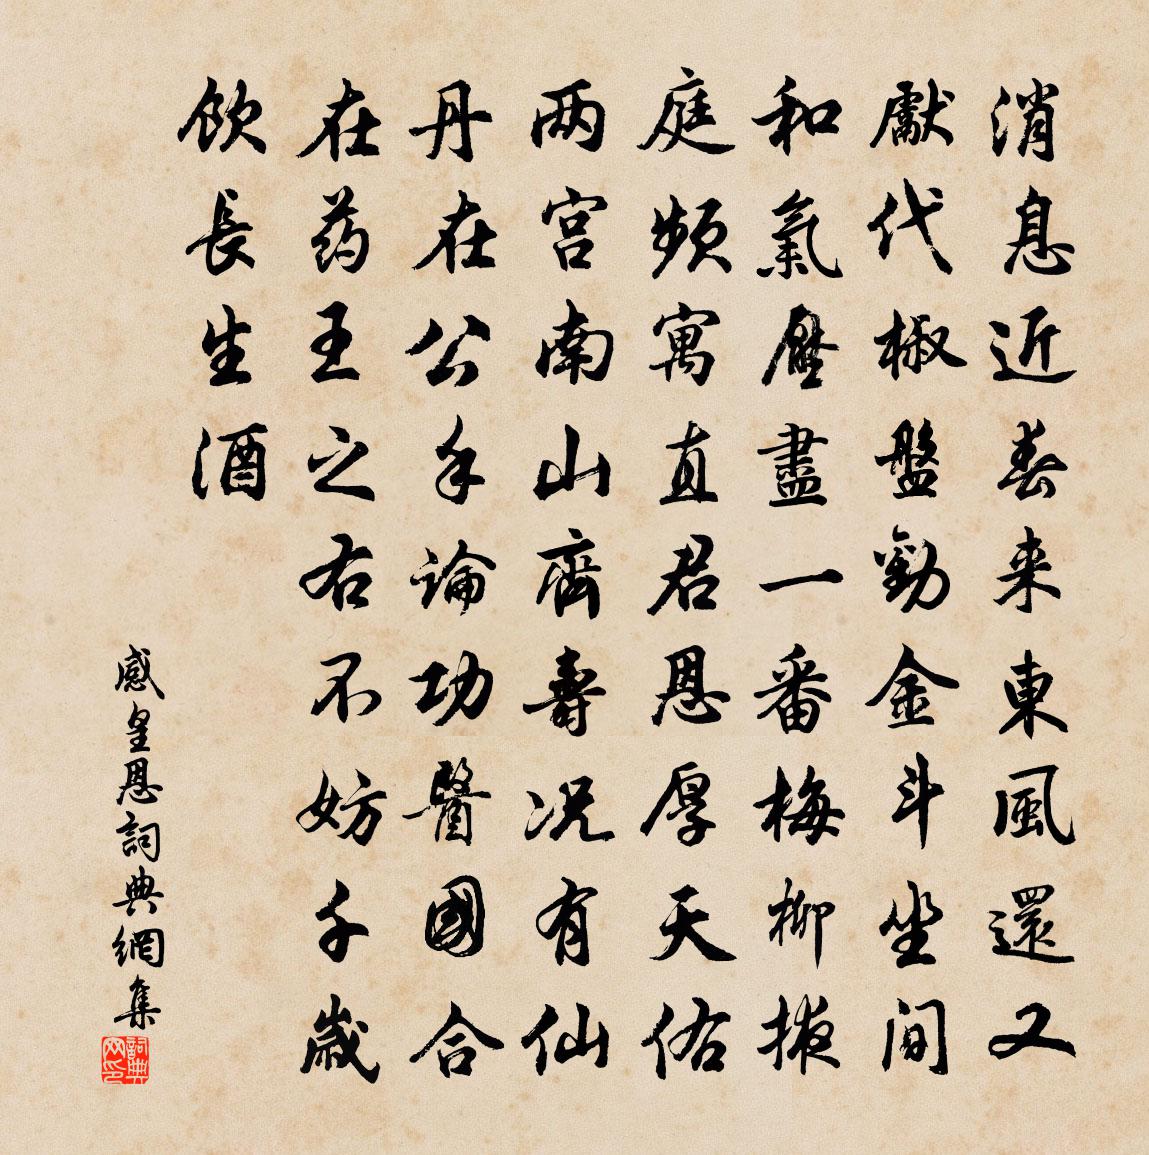 消息近春来東風還又
獻代椒盤勸金斗坐間
和氣壓盡一番梅柳掖
庭頻寓直君恩厚天佑
两宫南山齊壽况有仙
丹在公手論功醫國合
在药王之右不妨千歳
飲長生酒
感皇恩詞典網集
詞典网印